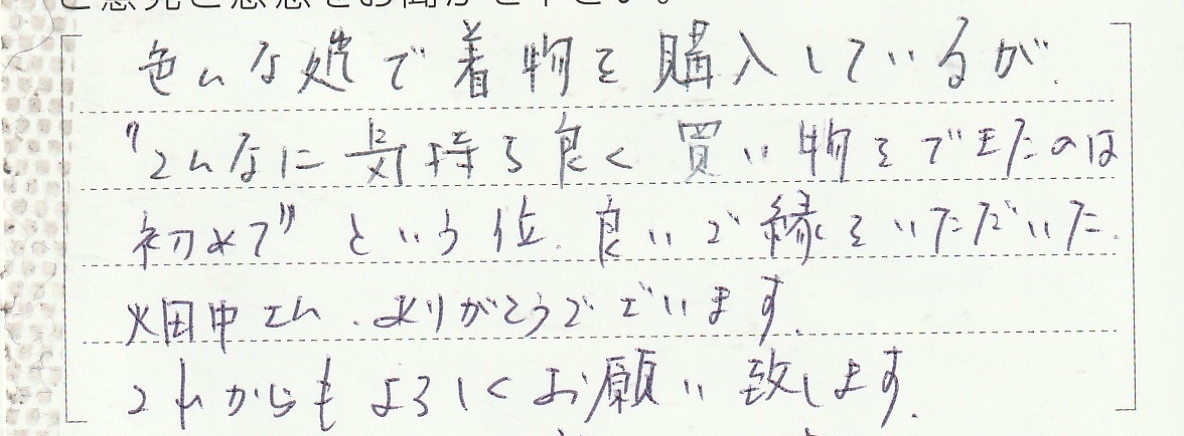 ご意見ご感想をお聞かせ下さい。
色んな処で着物を購入しているが、
"こんなに気持ち良く買い物をできたのは
初めて"という位、良いご縁をいただいた。
畑中さん、ありがとうございます。
これからもよろしくお願い致します。